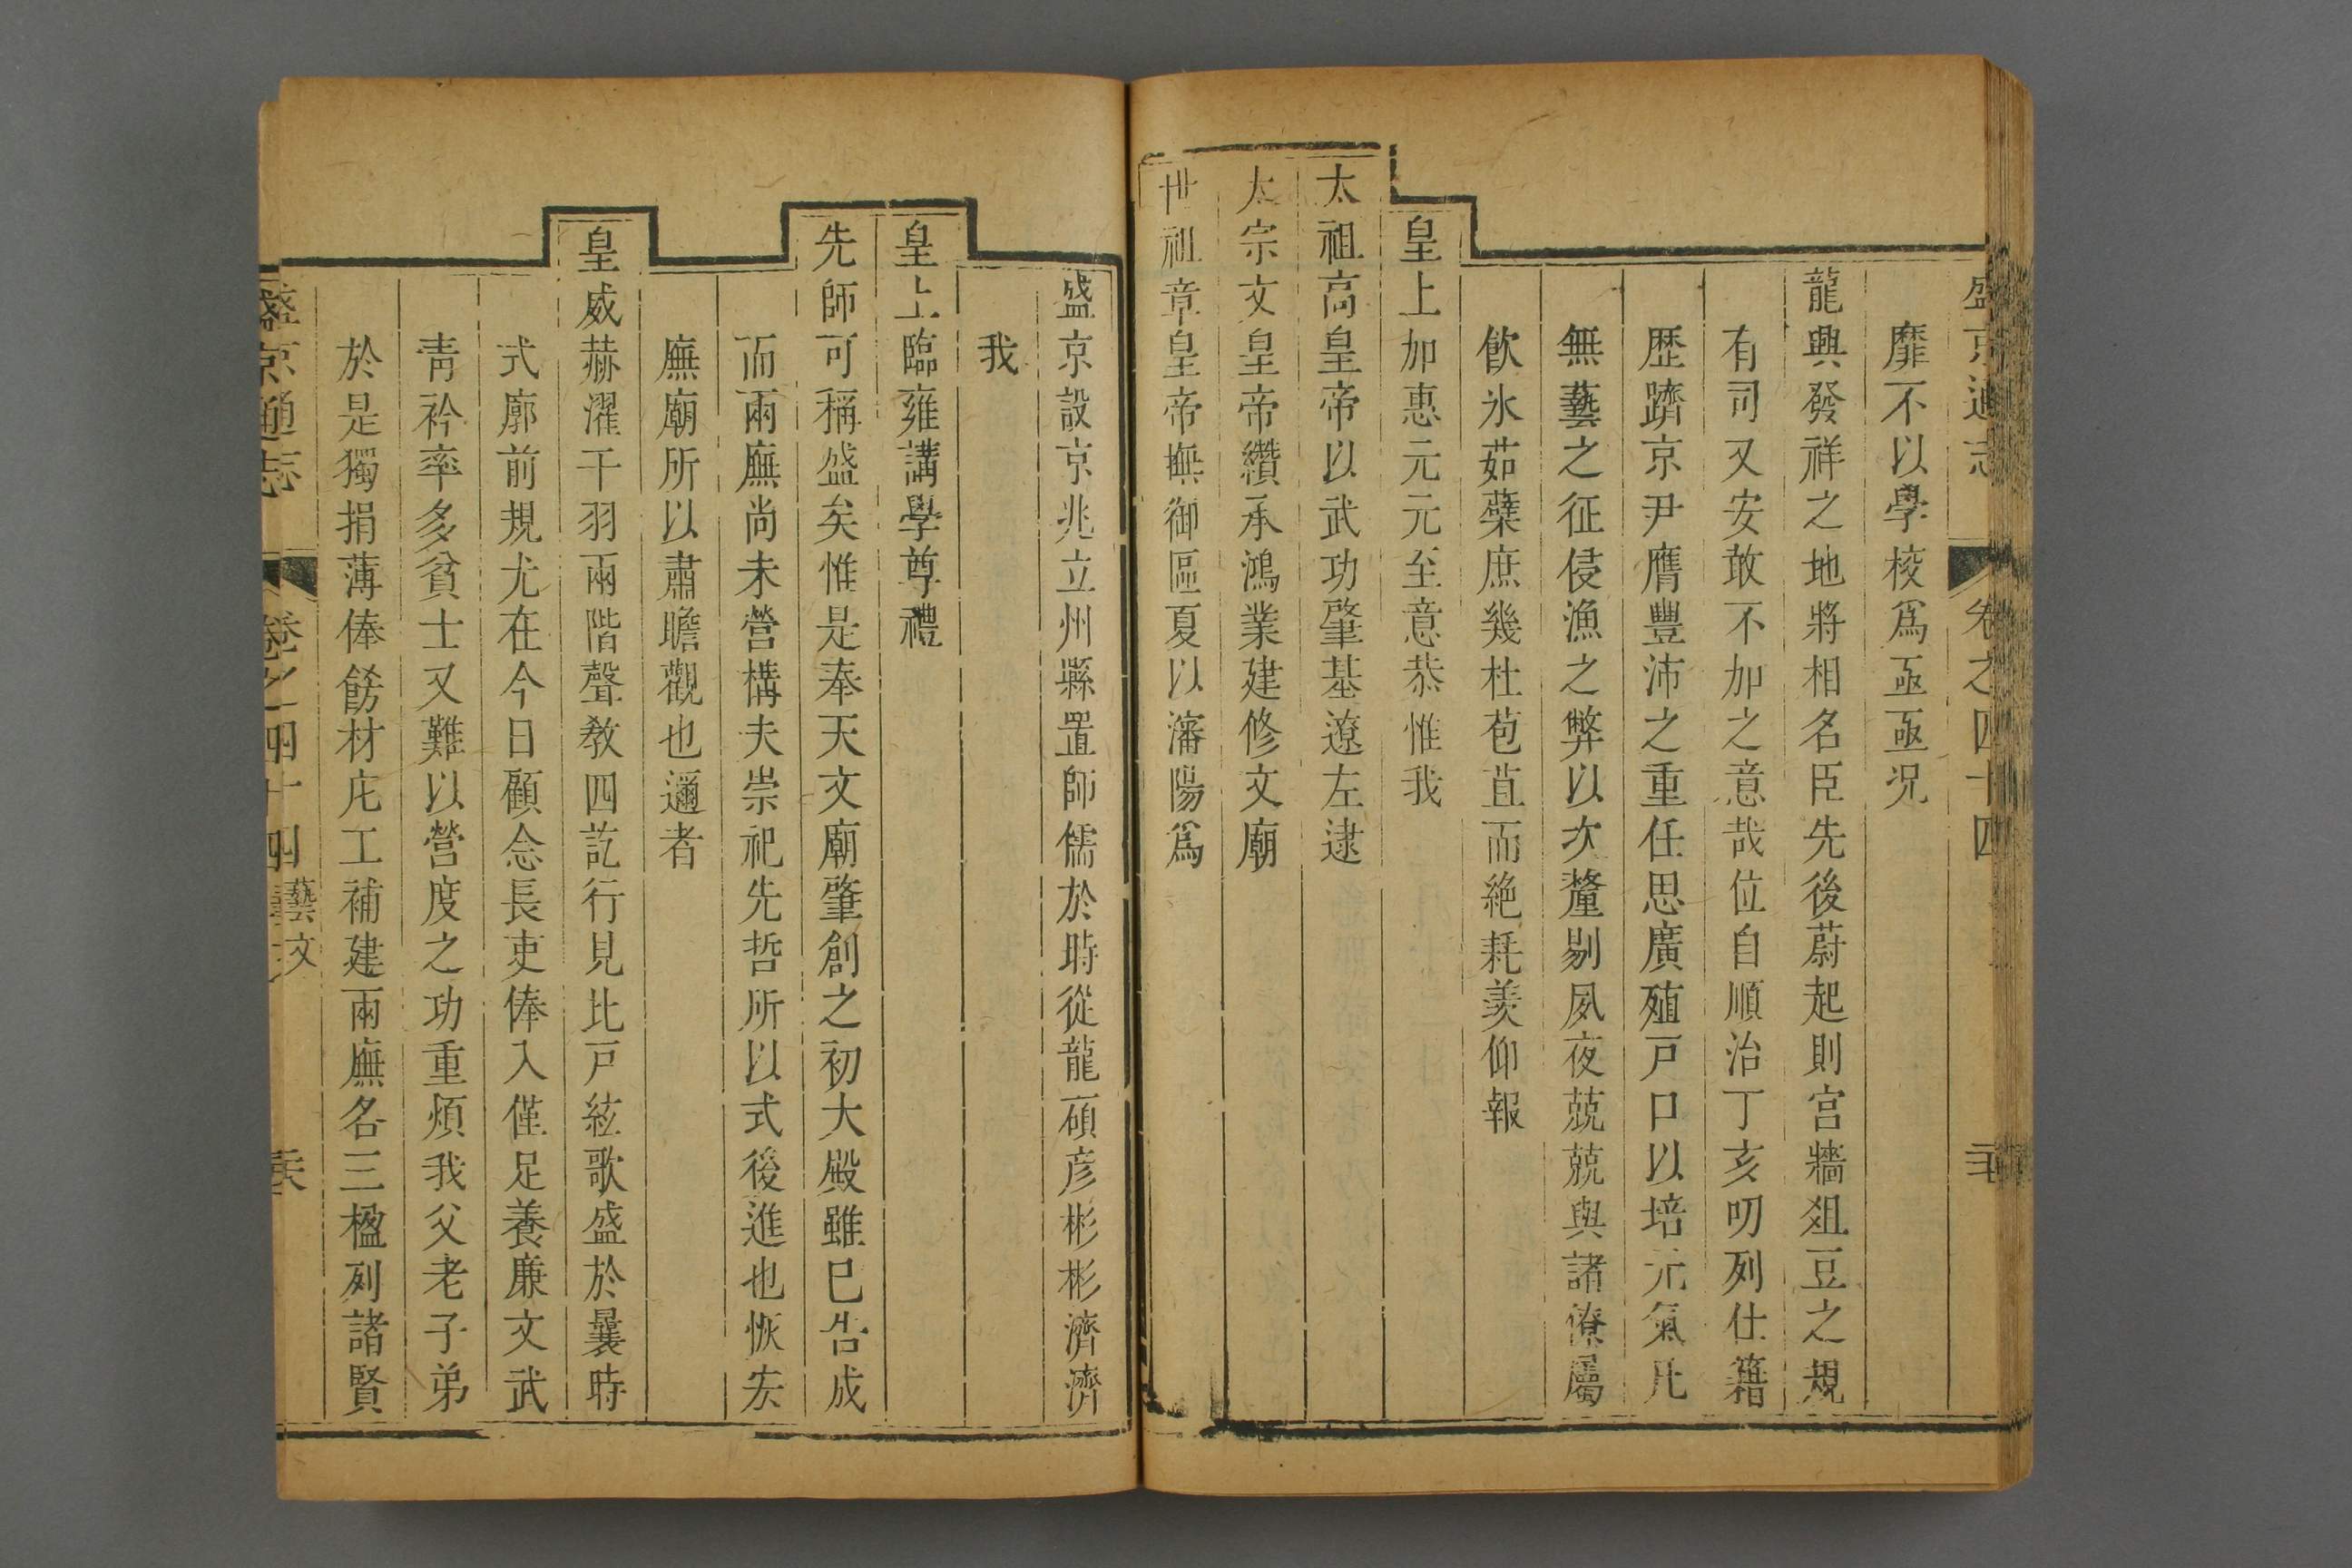 盛京通志
卷之四十四
靡不以學校爲亟亟况
龍興發祥之地將相名臣先後蔚起則宫牆爼豆之規
有司又安敢不加之意哉位自順治丁亥叨列仕籍
歴躋京尹膺豐沛之重任思廣殖戸口以培元氣凡
無藝之征侵漁之弊以次釐剔夙夜兢兢與諸僚屬
飲氷茹蘖庶幾杜苞苴而絶耗羡仰報
皇上加惠元元至意恭惟我
太祖高皇帝以武功肇基遼左逮
太宗文皇帝纘承鴻業建修文廟
世祖章皇帝撫御區夏以瀋陽爲
盛京設京兆立州縣置師儒於時從龍碩彦彬彬濟濟
我
皇上臨雍講學尊禮
先師可稱盛矣惟是奉天文廟肇創之初大殿雖已告成
而兩廡尚未營構夫崇祀先哲所以式後進也恢宏
廡廟所以肅瞻觀也邇者
皇威赫濯干羽兩階聲敎四訖行見比戸絃歌盛於曩時
式廓前規尤在今日顧念長吏俸入僅足養廉文武
靑衿率多貧士又難以營度之功重煩我父老子弟
於是獨捐薄俸餝材庀工補建兩廡各三楹列諸賢
盛京通志
卷之四十四
藝文